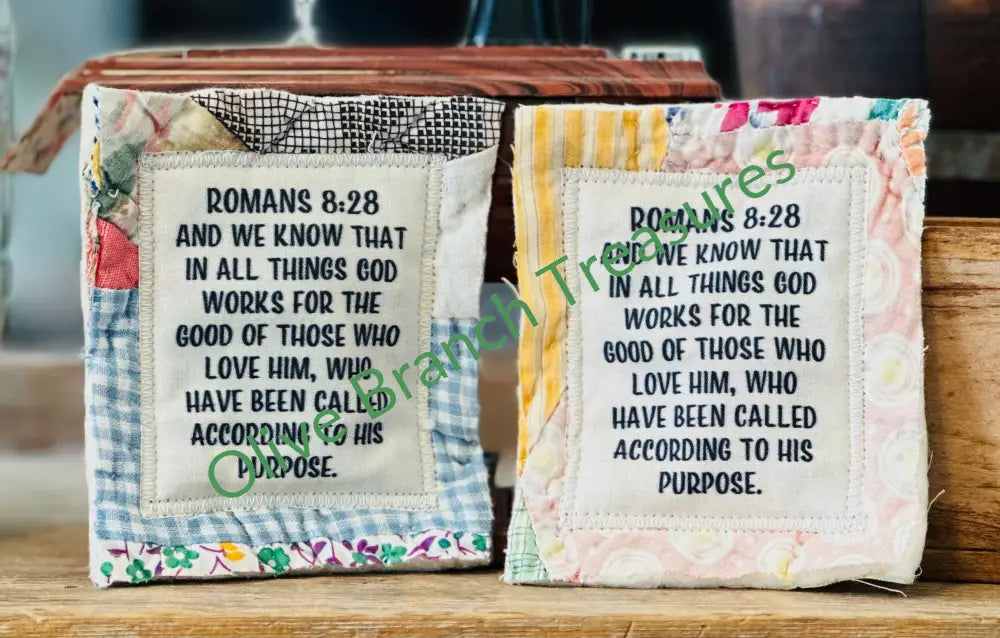 ROMANS 8:28
AND WE KNOW THAT
IN ALL THINGS GOD
WORKS FOR THE
GOOD OF THOSE WHO
LOVE HIM, WHO
HAVE BEEN CALLED
ACCORDING TO HIS
PURPOSE.
ROMANS 8:28
AND WE KNOW THAT
IN ALL THINGS GOD
WORKS FOR THE
GOOD OF THOSE WHO
LOVE HIM, WHO
HAVE BEEN CALLED
ACCORDING TO HIS
PURPOSE.
Olive Branch Treasures